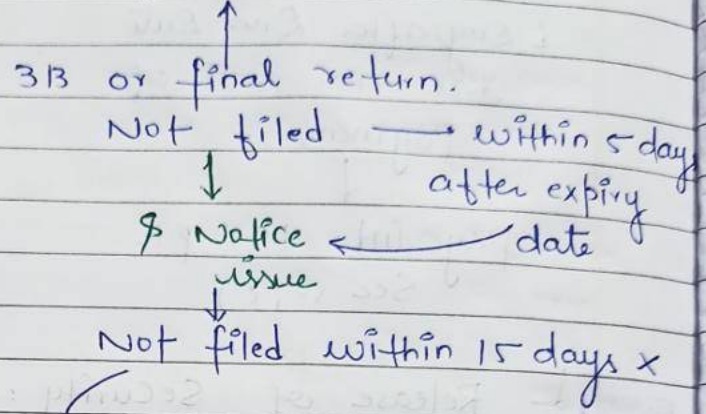 3B or final return.
Not filed → within 5 days
after expiry
date
$ Notice ←
issue
Not filed within 15 days x